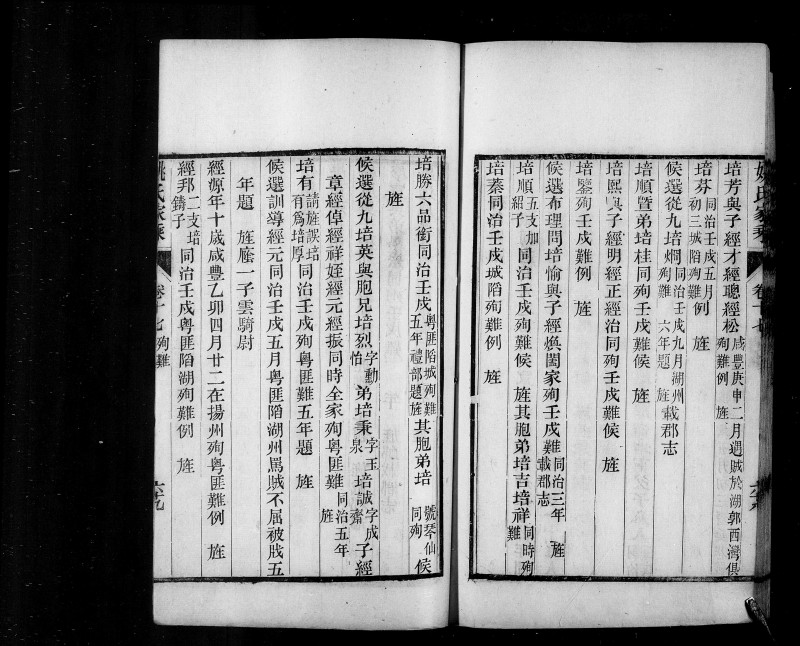 培芳與子經才經聰經松咸豐庚申二月遇賊於湖郭西灣俱殉難例　旌
培芬同治壬戌五月初三城陷殉難例　旌
候選從九培烱同治壬戌九月湖州殉難　六年題　旌載郡志
培順暨弟培桂同殉壬戌難候　旌
培熙與子經明經正經治同殉壬戌難候　旌
培鑒殉壬戌難例　旌
候選布理問培愉與子經煥闔家殉壬戌難同治三年　旌載郡志
培順五支加紹子同治壬戌殉難候　旌其胞弟培吉培祥同時殉難
培蔡同治壬戌城陷殉難例　旌
姚氏家乘
卷十七
培勝六品銜同治壬戌粵匪陷城殉難五年禮部題旌其胞弟培號琴仙同殉候
旌
候選從九培英與胞兄培烈字動怡弟培秉字玉泉培誠字成齋子經
章經倬經祥姪經元經振同時全家殉粵匪難同治五年旌
培有請旌誤培有為培厚同治壬戌殉粵匪難五年題　旌
候選訓導經元同治壬戌五月粵匪陷湖州罵賊不屈被戕五
年題　旌廕一子雲騎尉
經源年十歲咸豐乙卯四月廿二在揚州殉粵匪難例　旌
經邦二支培鑄子同治壬戌粵匪陷湖殉難例　旌
姚氏家乘
卷十七　殉難
六九